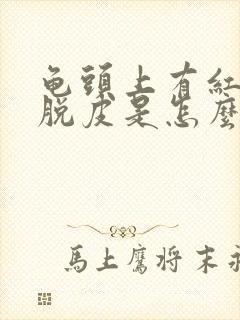 龟頭上有紅
脫皮是怎麼
馬上鷹将末